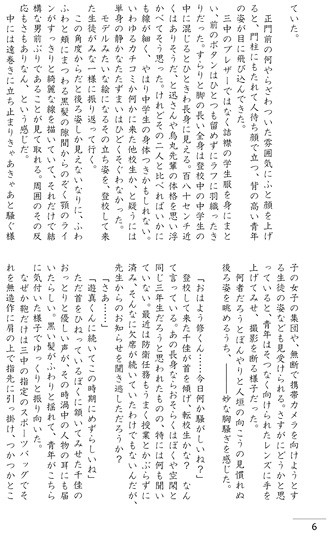 ていた。
　正門前の何やらざわついた雰囲気にふと顔を上げ
ると、門柱にもたれて人待ち顔で立つ、背の高い青年
の姿が目に飛び込んできた。
　三中のブレザーではなく詰襟の学生服を身にまと
い、前のボタンはひとつも留めずにラフに羽織ったき
りだった。すらりと脚の長い全身は登校中の中学生の
中に混じるとひときわ長身に見える。百八十センチ近
くはありそうだ、と迅さんや烏丸先輩の体格を思い浮
かべてそう思った。けれどその二人と比べればいかに
も線が細く、やはり中学生の身体つきかもしれない。
いわゆるカチコミか何かに来た他校生か、と疑うには
単身の静かなたたずまいはひどくそぐわなかった。
　モデルみたいな絵になるその立ち姿を、登校して来
た生徒がみな一様に振り返って行く。
　この角度からだと後ろ姿しか見えないなりに、ふわ
ふわと頬にまつわる黒髪の隙間からのぞく顎のライ
ンがすっきりと綺麗な線を描いていて、それだけで結
構な男前ぶりであることが見て取れる。周囲のその反
応もさもありなん、という感じだ。
　中には遠巻きに立ち止まりきゃあきゃあと騒ぐ様
子の女子の集団や、無断で携帯カメラを向けようとす
る生徒の姿なども見受けられる。さすがにどうかと思
っていると、青年はそつなく向けられたレンズに手を
上げてみせ、撮影を断る様子だった。
　何者だろうとぼんやりと人垣の向こうの見慣れぬ
後ろ姿を眺めるうち、――妙な胸騒ぎを感じた。
「おはよう修くん……今日何か騒がしいね？」
　登校して来た千佳が首を傾げ、転校生かな？　なん
て言っている。あの長身ならおそらくはぼくや空閑と
同じ三年生だろうと思われたものの、特には何も聞い
ていない。最近は防衛任務もうまく授業とかぶらずに
済み、そんなに欠席が続いていたわけでもないんだが、
先生からのお知らせを聞き逃しただろうか？
「さあ……」
「遊真くんに続いてこの時期にめずらしいね」
　ただ首をひねっているぼくに頷いてみせた千佳の
おっとりと優しい声が、その時渦中の人物の耳にも届
いたらしい。黒い髪がふわりと揺れて、青年がこちら
に気付いた様子でゆっくりと振り向いた。
　なぜか鞄だけは三中の指定のスポーツバッグでそ
れを無造作に肩の上で指先に引っ掛け、つかつかとこ
6